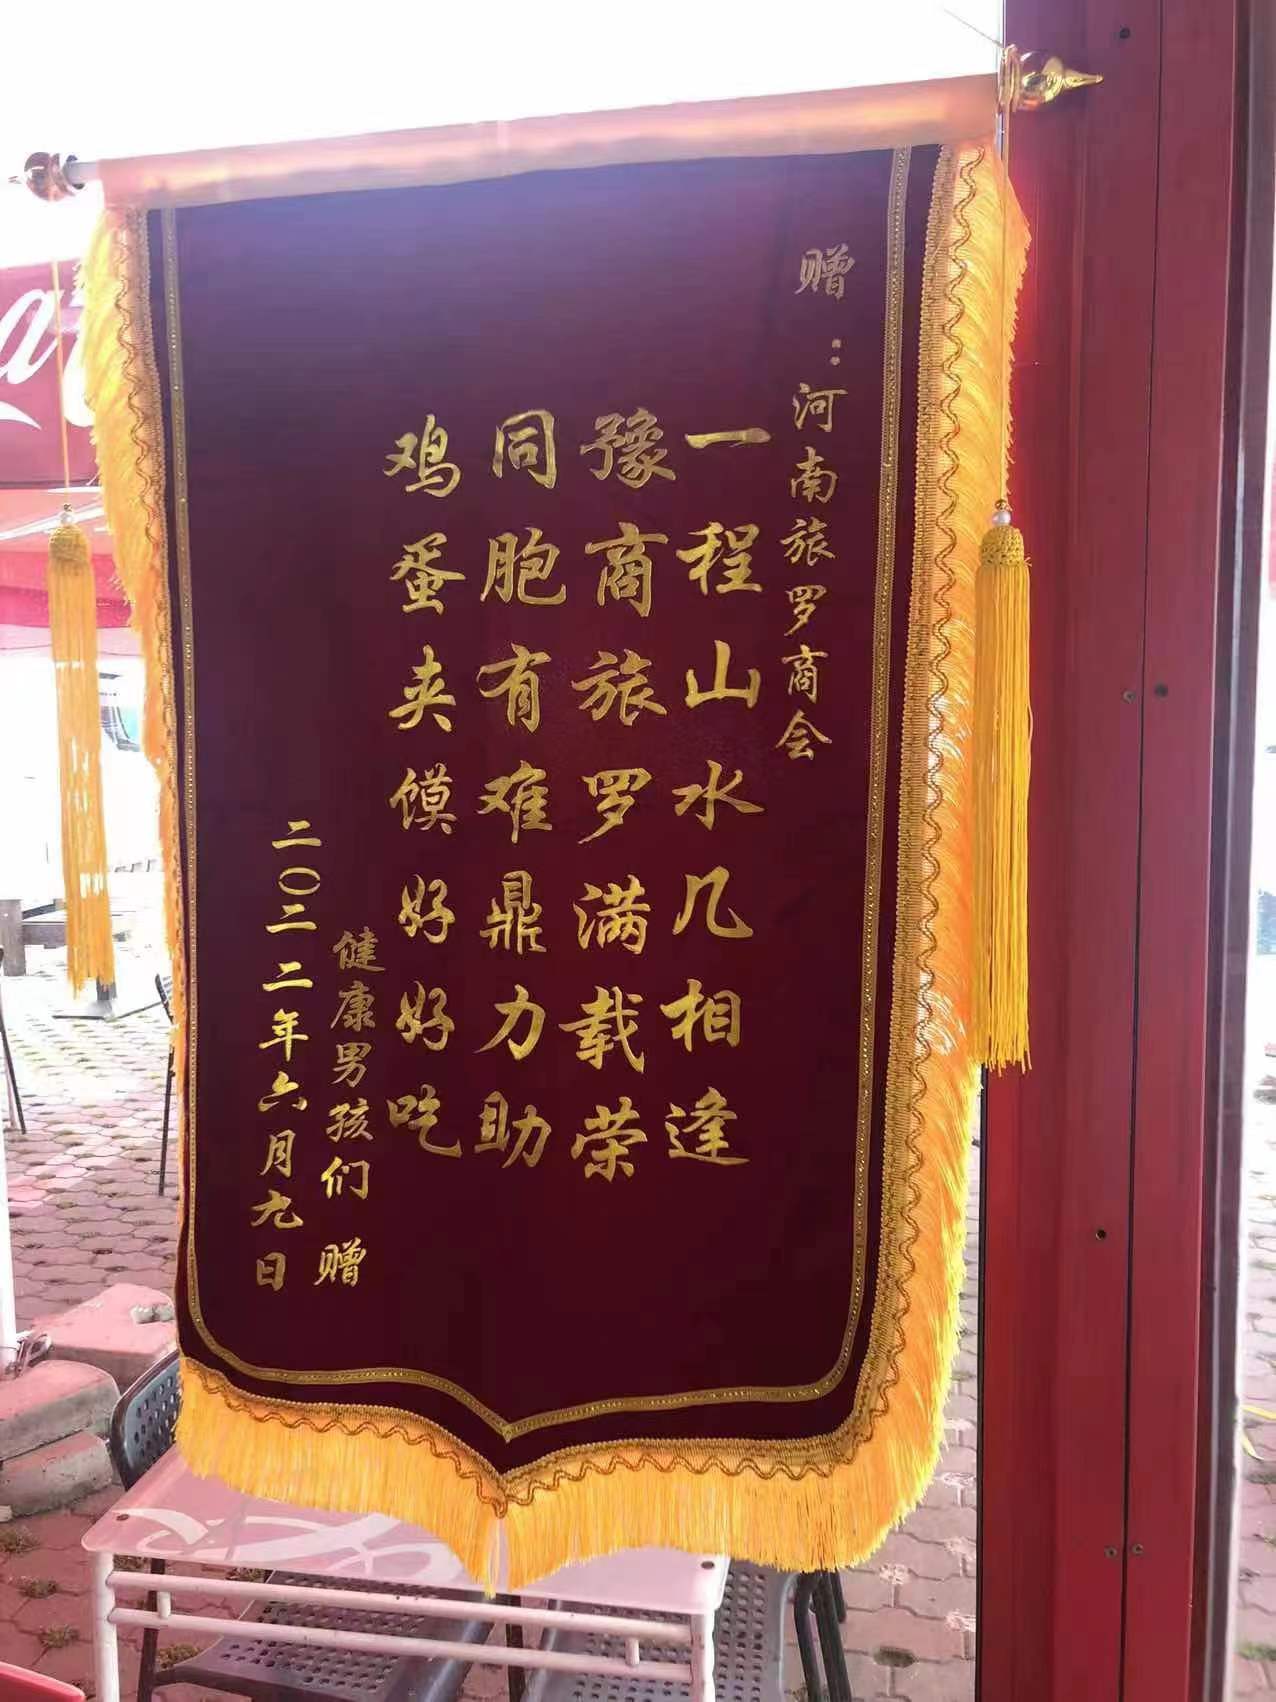 赠：河南旅罗商会
一程山水几相逢
豫商旅罗满载荣
同胞有难鼎力助
鸡蛋夹馍好好吃
健康男孩们 赠
二〇二二年六月九日